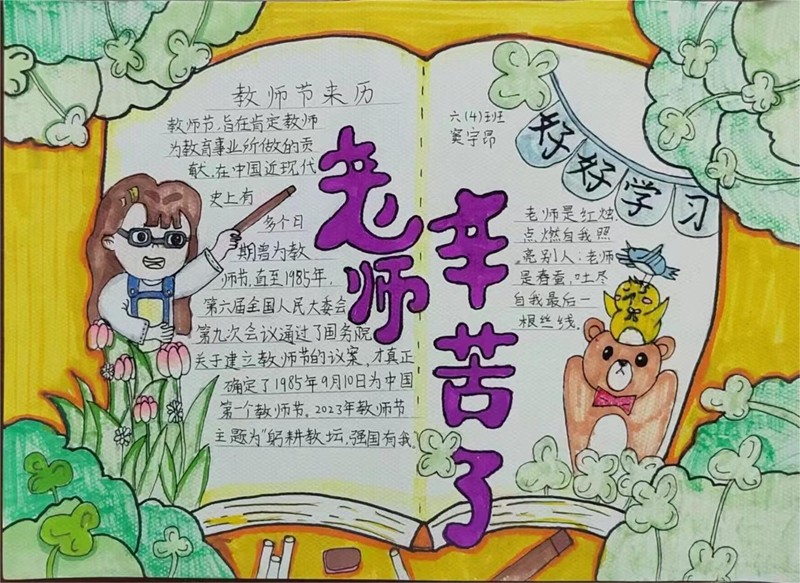 教师节来历
教师节，旨在肯定教师
为教育事业所做的贡
献，在中国近现代
史上有
多个日
期曾为教
师节，直至1985年，
第六届全国人民大委会
第九次会议通过了国务院
关于建立教师节的议案，才真正
确定了1985年9月10日为中国
第一个教师节，2023年教师节
主题为“躬耕教坛，强国有我。
老师
辛苦了
六(4)班
窦宇昂
好好学习
老师是红烛
点燃自我照
亮别人：老师
是春蚕，吐尽
自我最后一
根丝线。